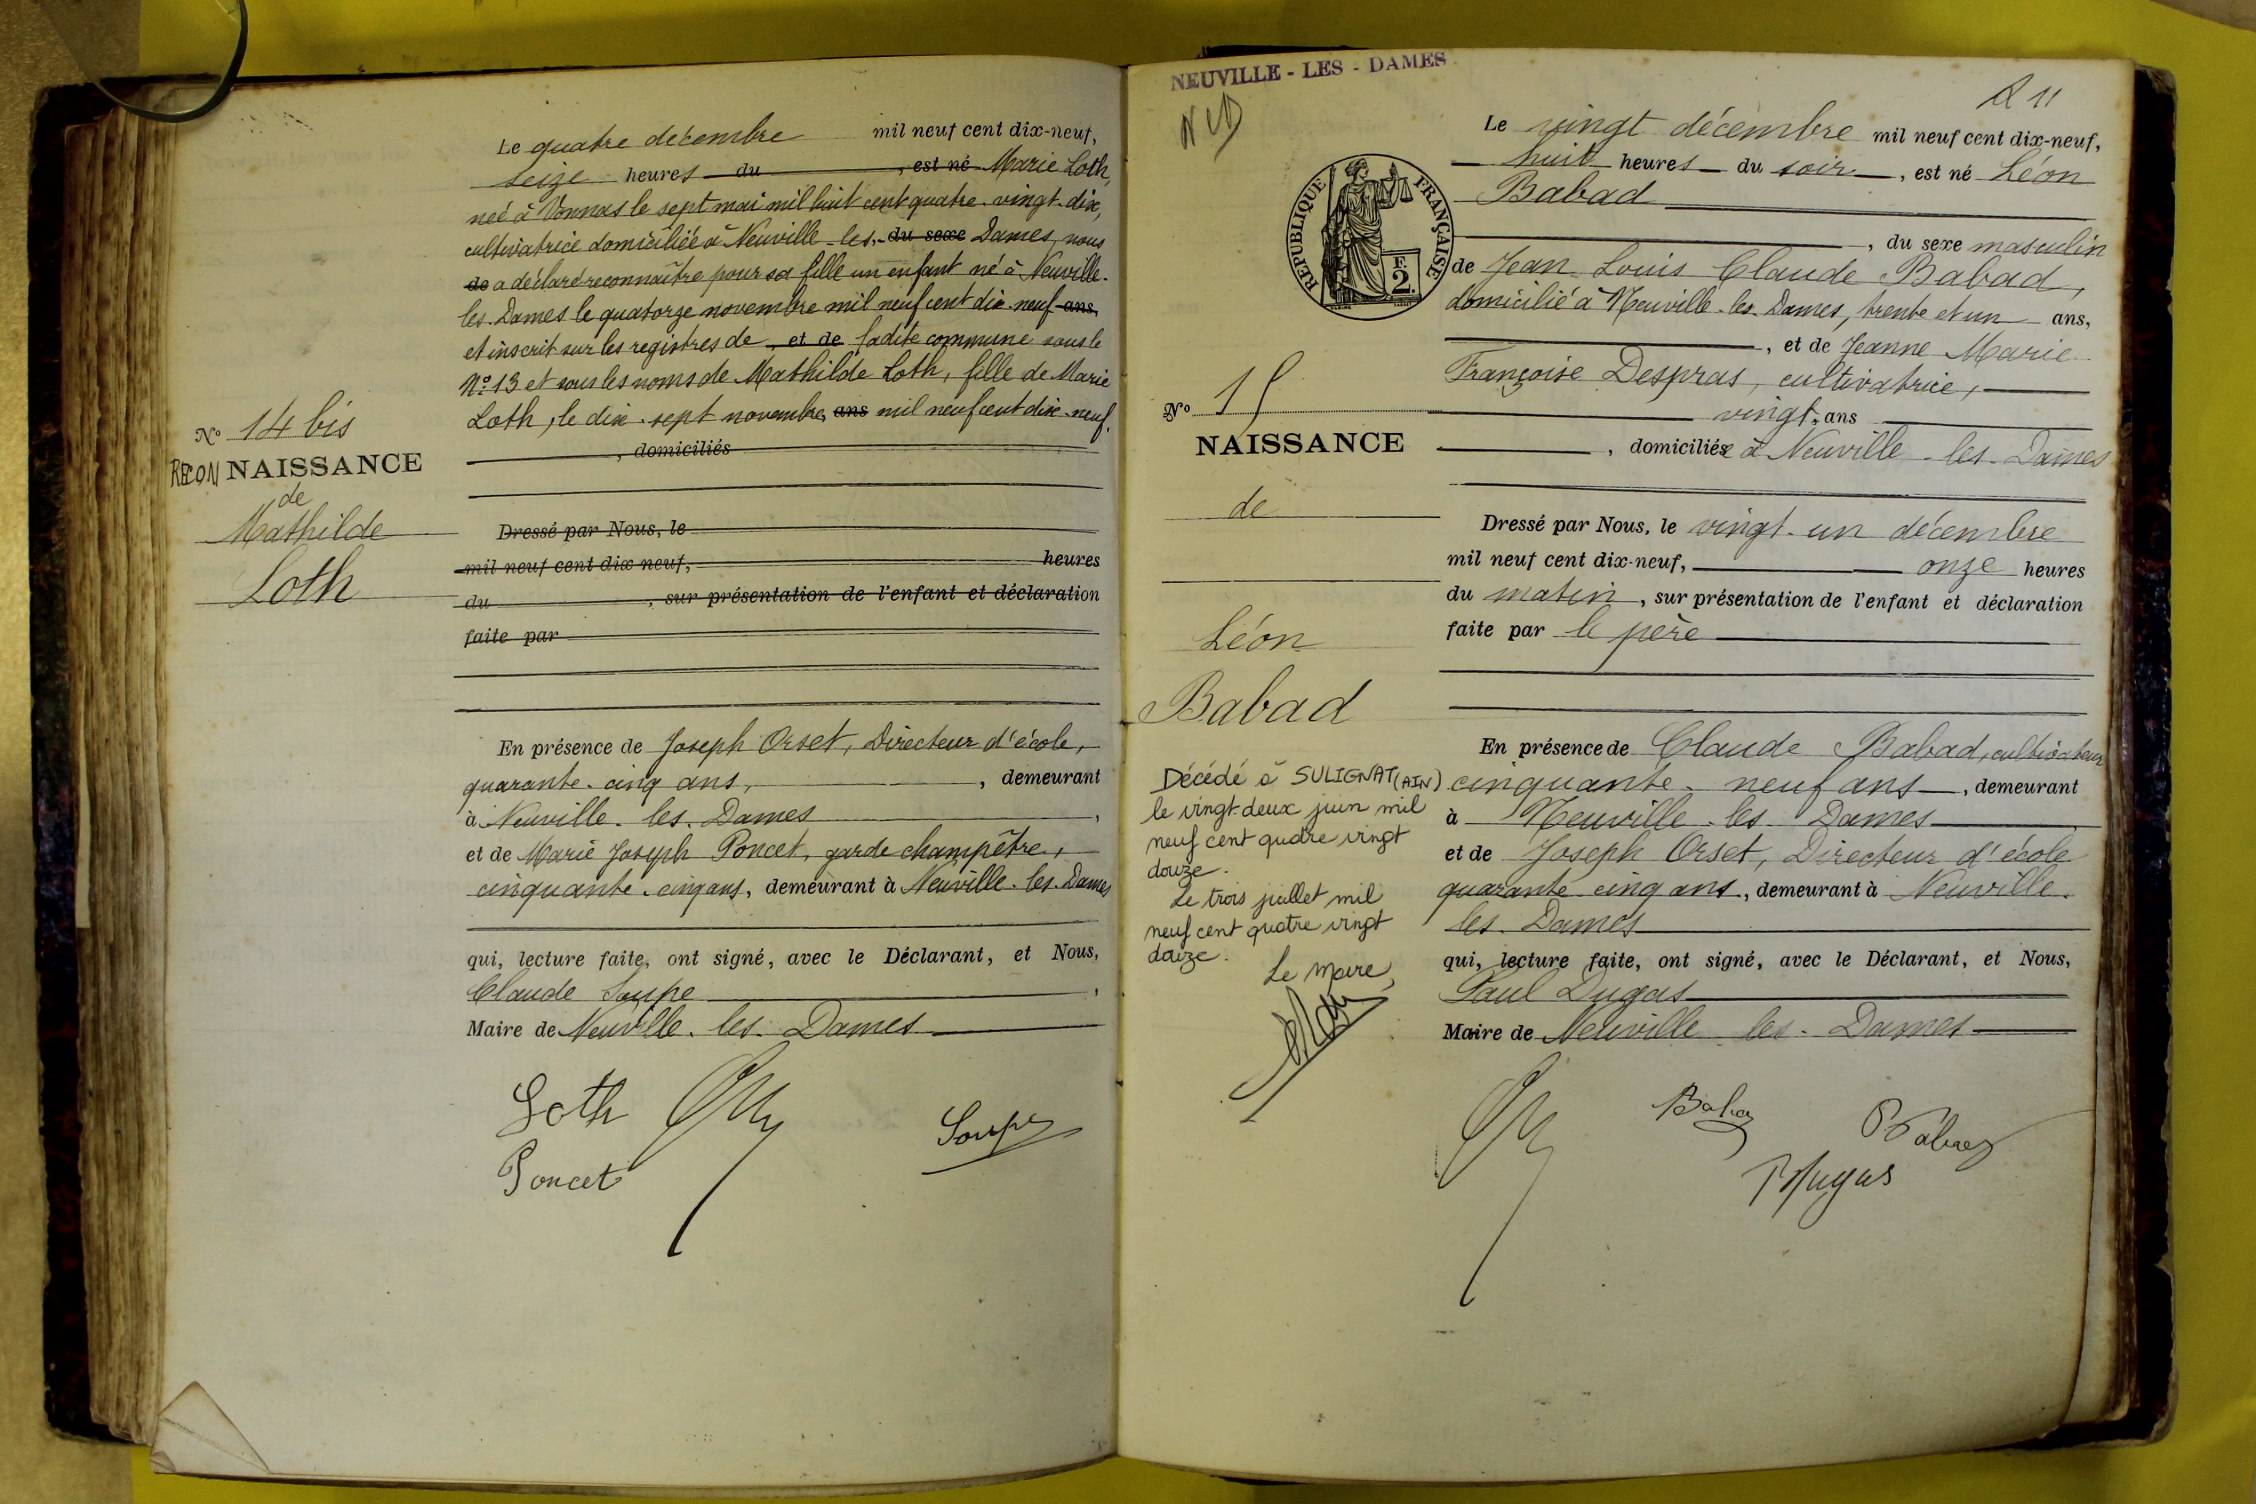 Le quatre décembre mil neuf cent dix-neuf,
seize heures du , est né Marie Loth,
née à Vonnas le sept mai mil huit cent quatre-vingt-dix,
cultivatrice domiciliée à Neuville-les- du sexe Dames, nous
de a déclaré reconnaître pour sa fille un enfant né à Neuville-
les-Dames le quatorze novembre mil neuf cent dix-neuf ans,
et inscrit sur les registres de , et de ladite commune sous le
N° 13 et sous les noms de Mathilde Loth, fille de Marie
Loth, le dix-sept novembre, ans mil neuf cent dix-neuf.
, domiciliés
N° 14 bis
RECONNAISSANCE
de
Mathilde
Loth
Dressé par Nous, le
mil neuf cent dix-neuf, heures
du , sur présentation de l'enfant et déclaration
faite par
En présence de Joseph Orset, Directeur d'école,
quarante-cinq ans, , demeurant
à Neuville-les-Dames ,
et de Marie Joseph Poncet, garde champêtre,
cinquante-cinq ans, demeurant à Neuville-les-Dames
qui, lecture faite, ont signé, avec le Déclarant, et Nous,
Claude Soupe ,
Maire de Neuville-les-Dames
Loth
Soupe
Poncet
NEUVILLE-LES-DAMES
REPUBLIQUE FRANÇAISE
F.
2.
Le vingt décembre mil neuf cent dix-neuf,
huit heures du soir , est né Léon
Babad
, du sexe masculin
de Jean Louis Claude Babad,
domicilié à Neuville-les-Dames, trente et un ans,
, et de Jeanne Marie
Françoise Despras, cultivatrice,
vingt, ans
, domiciliée à Neuville-les-Dames
N° 15
NAISSANCE
de
Léon
Babad
Dressé par Nous, le vingt-un décembre
mil neuf cent dix-neuf, onze heures
du matin , sur présentation de l'enfant et déclaration
faite par le père
En présence de Claude Babad, cultivateur
cinquante-neuf ans , demeurant
à Neuville-les-Dames
et de Joseph Orset, Directeur d'école
quarante-cinq ans, demeurant à Neuville-
les-Dames
qui, lecture faite, ont signé, avec le Déclarant, et Nous,
Paul Dugas
Maire de Neuville-les-Dames
Décédé à SULIGNAT (AIN)
le vingt-deux juin mil
neuf cent quatre vingt
douze.
Le trois juillet mil
neuf cent quatre vingt
douze.
Le maire,
Babad
Babad
P Dugas